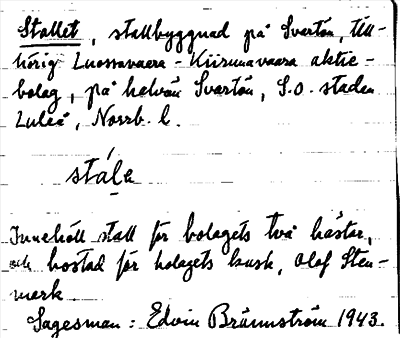 Stallet, stallbyggnad på Svartön, till-
hörig Luossavaara-Kiirunavaara aktie-
bolag, på halvön Svartön, S.O. staden
Luleå, Norrb. l.
stálę
Innehöll stall för bolagets två hästar,
och bostad för bolagets kusk, Olof Sten-
mark
Sagesman: Edvin Brännström 1943.